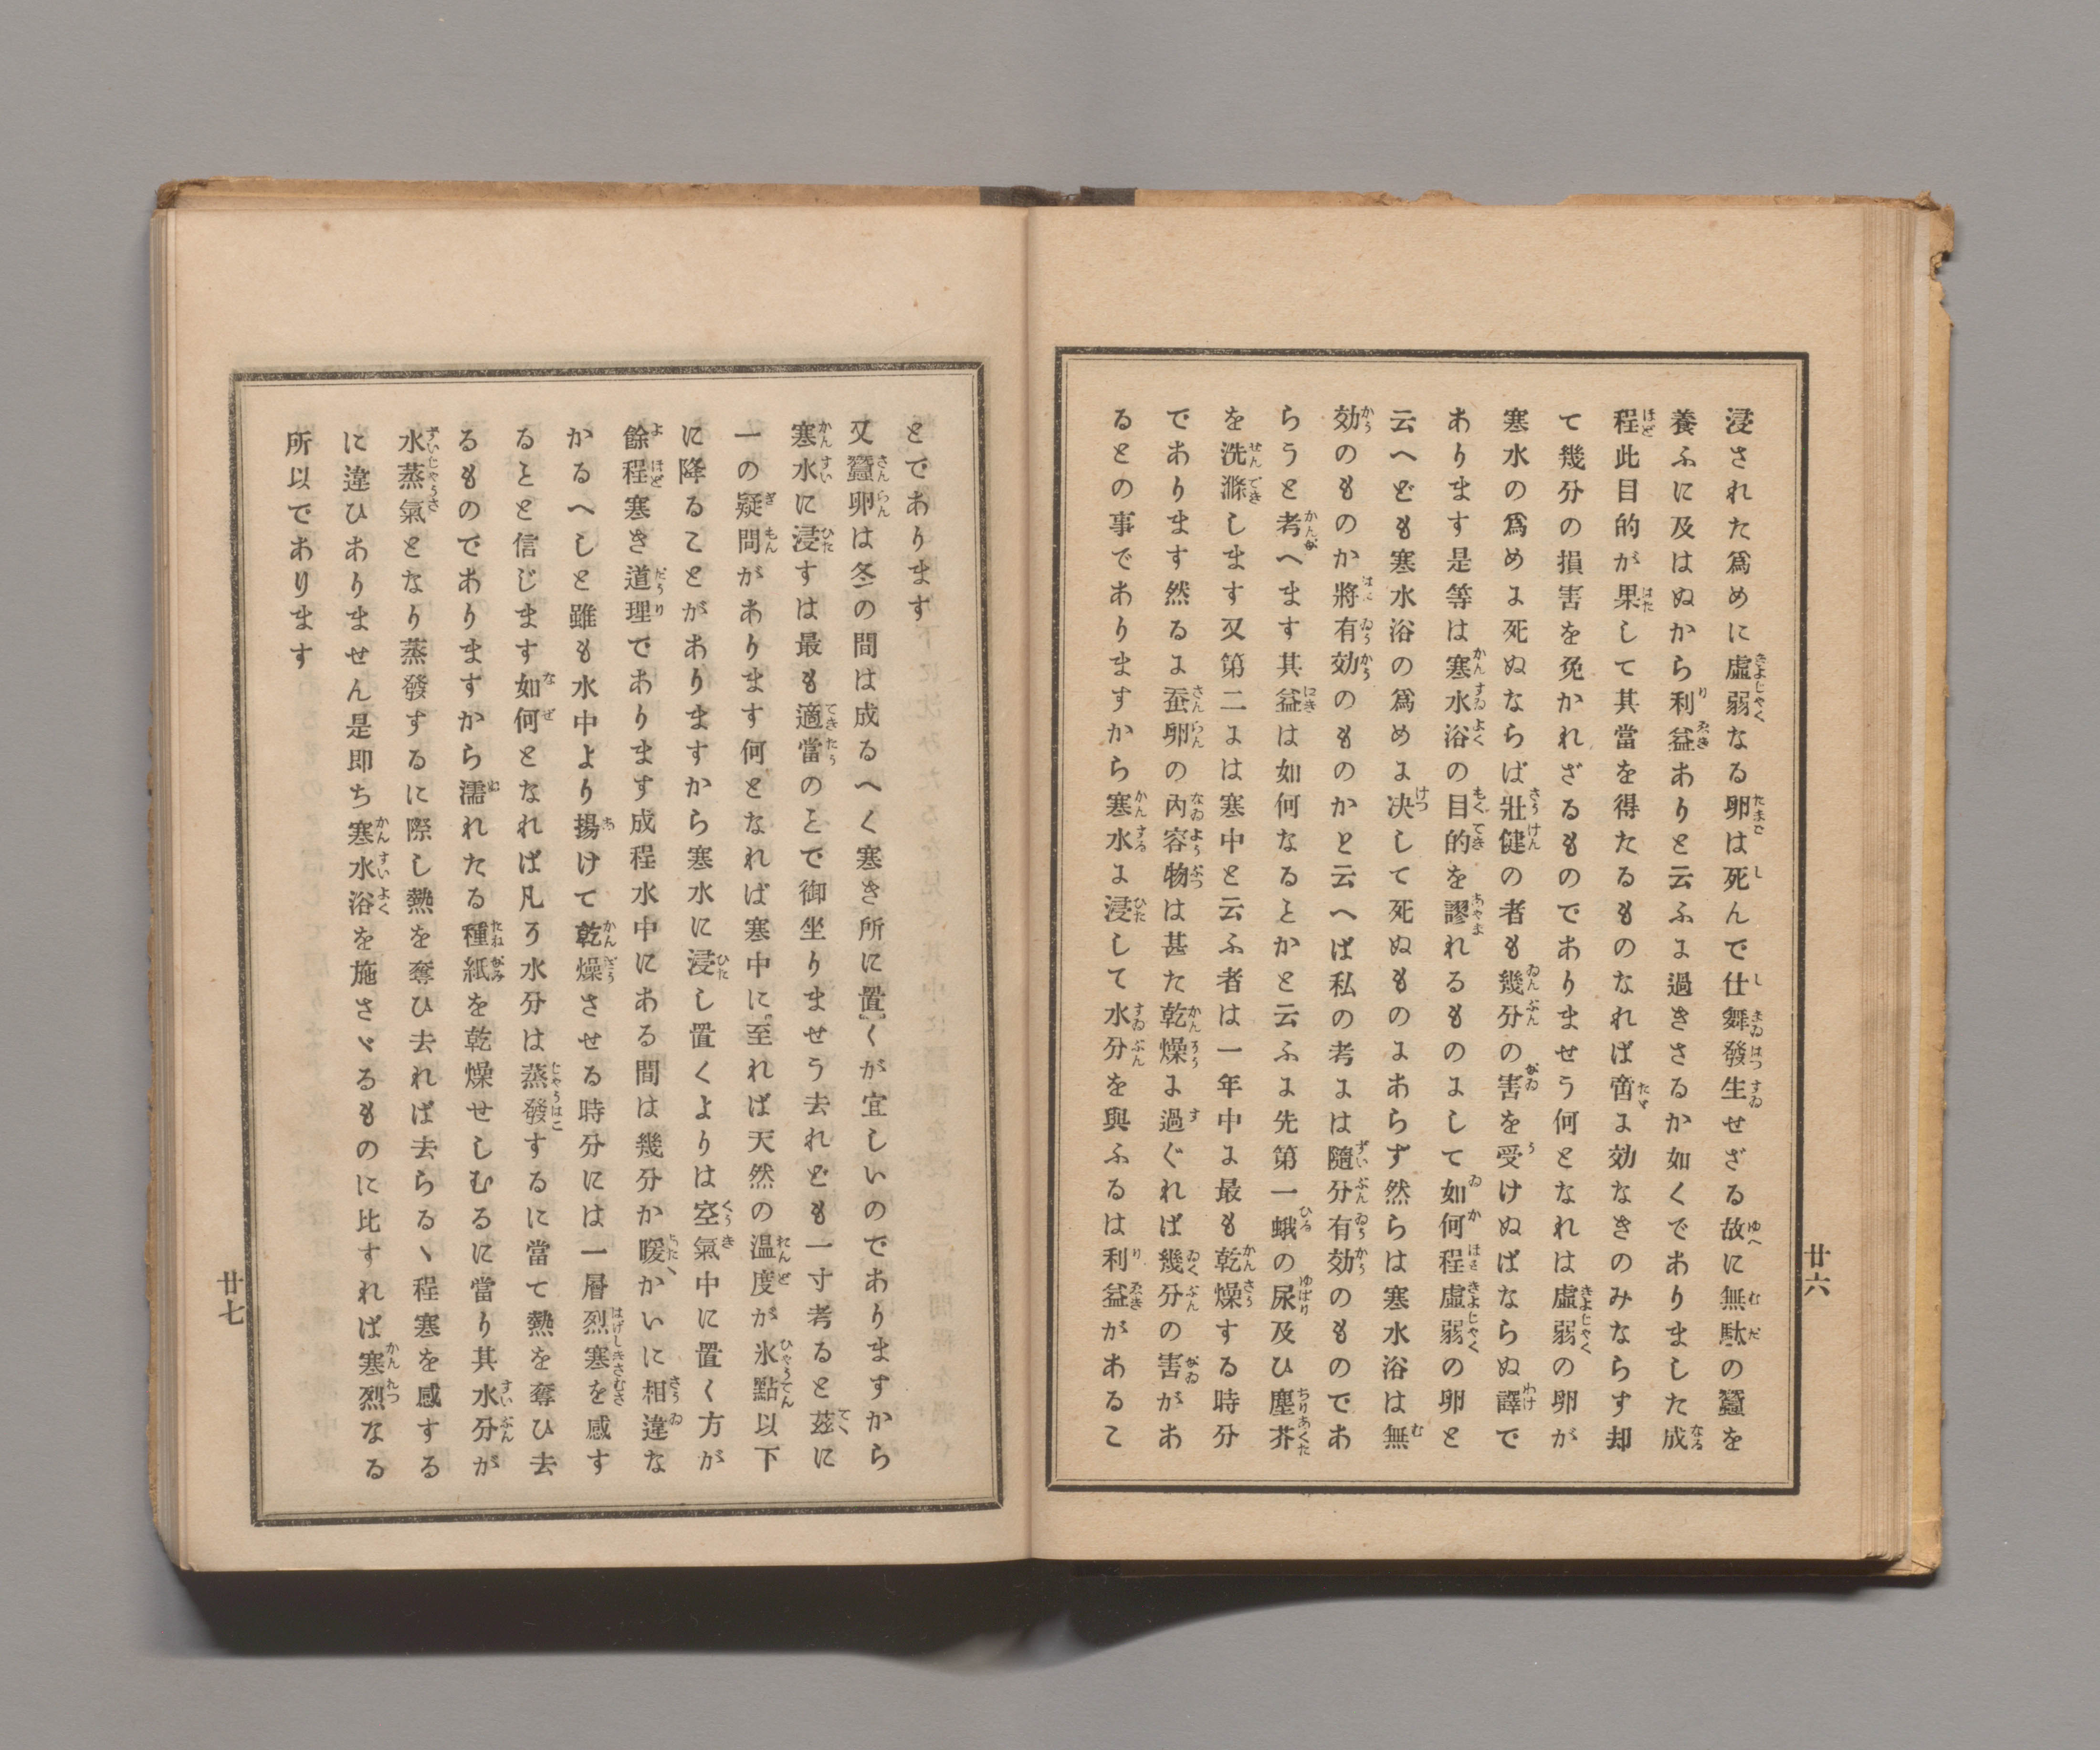 浸された爲めに虛弱なる卵は死んで仕舞發生せざる故に無駄の蠶を
養ふに及はぬから利益ありと云ふに過きさるか如くでありました成
程此目的が果して其當を得たるものなれば啻に効なきのみならす却
て幾分の損害を免かれざるものでありませう何となれは虛弱の卵が
寒水の爲めに死ぬならば壯健の者も幾分の害を受けぬばならぬ譯で
あります是等は寒水浴の目的を謬れるものにして如何程虛弱の卵と
云へども寒水浴の爲めに决して死ぬものにあらず然らは寒水浴は無
効のものか將有効のものかと云へば私の考には隨分有効のものであ
らうと考へます其益は如何なるとかと云ふに先第一蛾の尿及ひ塵芥
を洗滌します又第二には寒中と云ふ者は一年中に最も乾燥する時分
であります然るに蚕卵の內容物は甚た乾燥に過ぐれば幾分の害があ
るとの事でありますから寒水に浸して水分を與ふるは利益があるこ
廿六
とであります
又蠶卵は冬の間は成るへく寒き所に置くが宜しいのでありますから
寒水に浸すは最も適當のことで御坐りませう去れども一寸考ると茲に
一の疑問があります何となれば寒中に至れば天然の温度が氷點以下
に降ることがありますから寒水に浸し置くよりは空氣中に置く方が
餘程寒き道理であります成程水中にある間は幾分か暖かいに相違な
かるへしと雖も水中より揚けて乾燥させる時分には一層烈寒を感す
ることと信じます如何となれば凡ろ水分は蒸發するに當て熱を奪ひ去
るものでありますから濡れたる種紙を乾燥せしむるに當り其水分が
水蒸氣となり蒸發するに際し熱を奪ひ去れば去らるゝ程寒を感する
に違ひありません是即ち寒水浴を施さゞるものに比すれば寒烈なる
所以であります
廿七